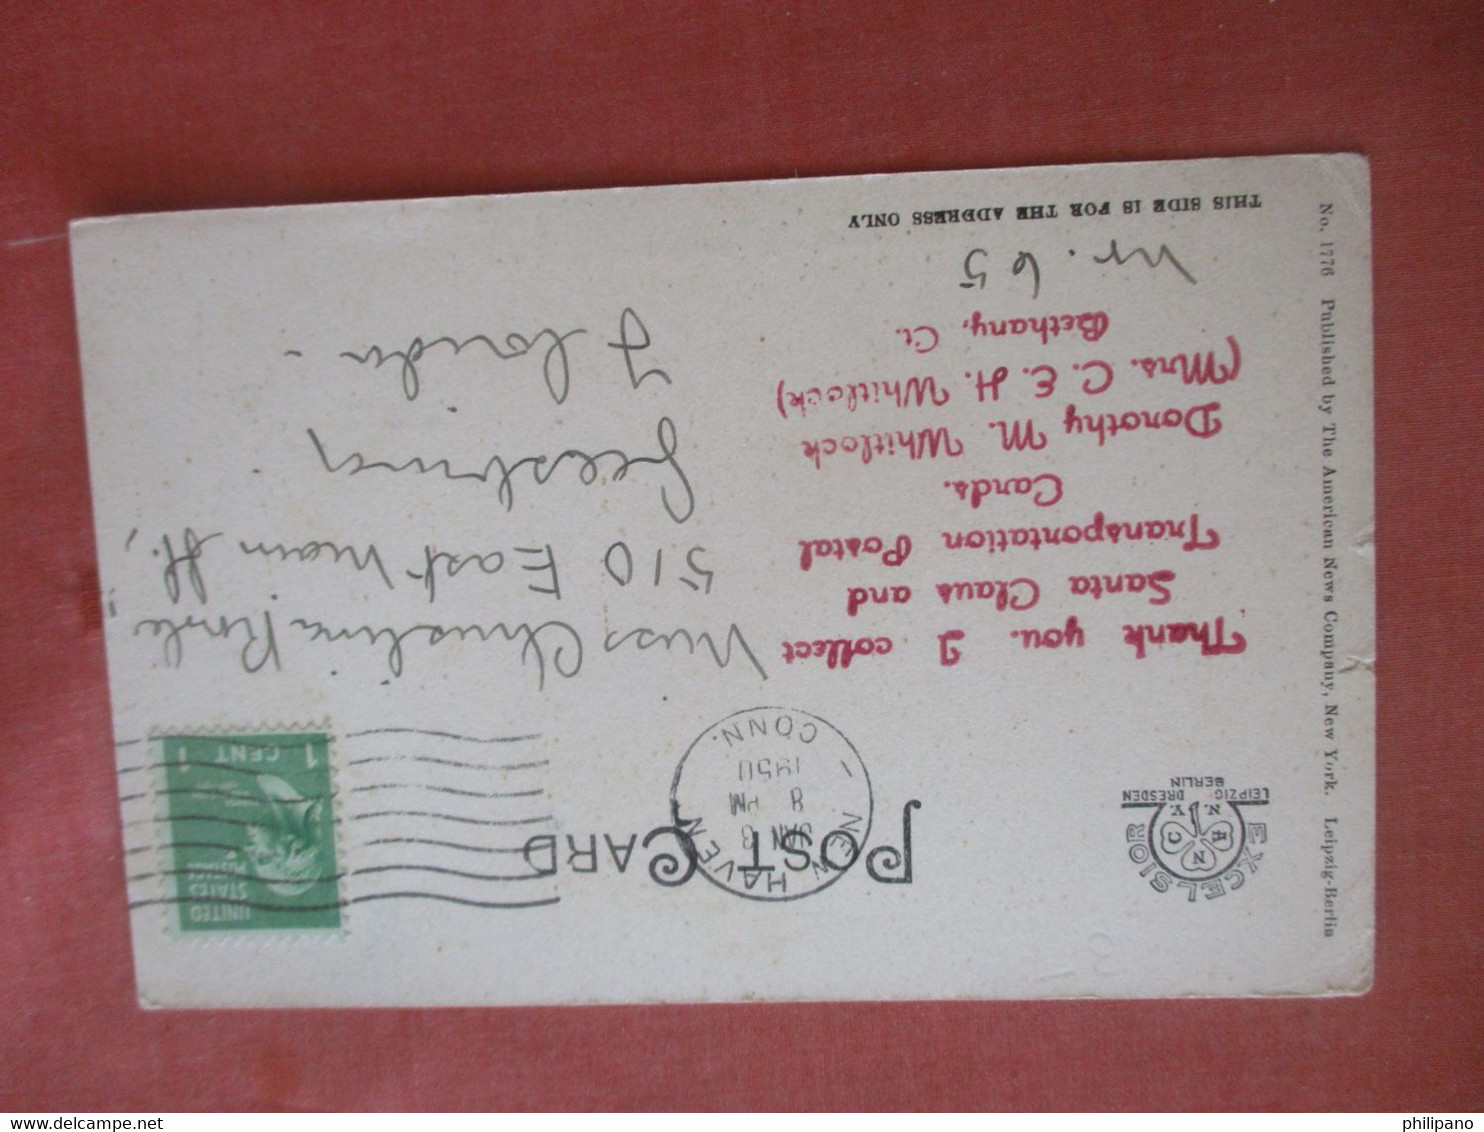 No. 1776 Published by The American News Company, New York. Leipzig-Berlin
EXCELSIOR
A N C
N. Y.
LEIPZIG DRESDEN
BERLIN
POST CARD
NEW HAVEN
JAN 3
8 PM
1950
CONN.
1
UNITED
STATES
POSTAGE
1 CENT 1
Thank you. I collect
Santa Claus and
Transportation Postal
Cards.
Dorothy M. Whitlock
(Mrs. C. E. H. Whitlock)
Bethany, Ct.
Nr. 65
Miss Christina
510 East Main St.,
Leesburg
Florida -
THIS SIDE IS FOR THE ADDRESS ONLY
philipano